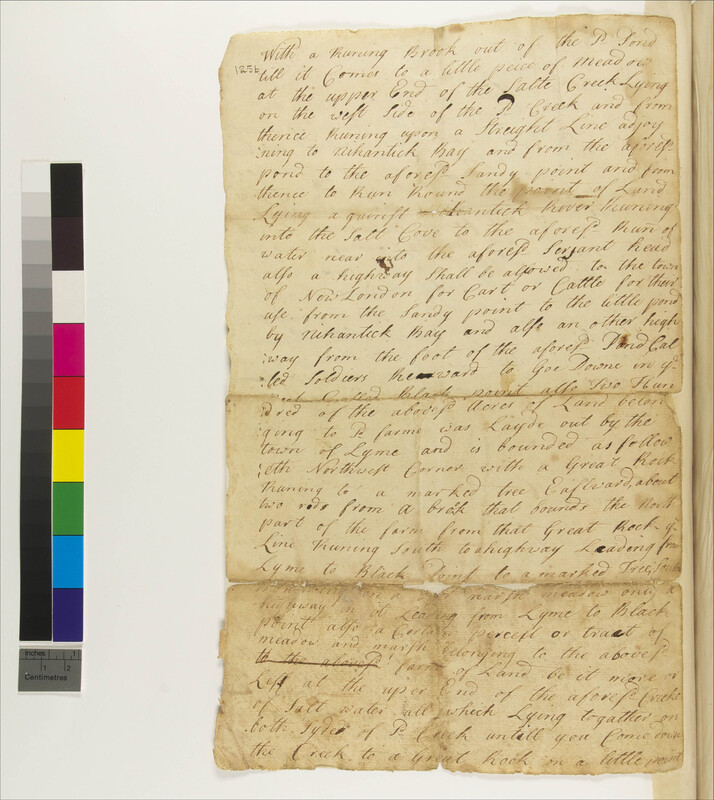 With a Runing Brook out of the Sd Pond
1256
till it Comes to a little peice of meadow
at the upper End of the Salte Creek Lying
on the west Side of the Sd Creek and from
thence Runing upon a Streight Line adjoy
:ning to Nihantick Bay and from the aforesd
pond to the aforesd Sandy point and from
thence to Run Round the point of Land
Lying against Nihantick River Runing
into the Salt Cove to the aforesd Run of
water near into the aforesd Serjant head
also a highway Shall be allowed to the town
of New London for Cart or Cattle for their
use from the Sandy point to the little pond
by Nihantick Bay and also an other high
:way from the foot of the aforesd Pond Cal
:led Soldiers Reward to Goe Downe in ye
neck Called Black point also two Hun
:dred of the abovesd Acres of Land belon
ging to Sd farme was Layde out by the
town of Lyme and is bounded as follow
:eth Northwest Corner with a Great Rock
Runing to a marked tree Eastward about
two rods from a that bounds the North
part of the farm from that Great Rock ye
Line Runing South to highway Leading from
Lyme to Black Point to a marked Tree, South
marsh meadow only a
highway in it Leading from Lyme to Black
point also a Certain percell or tract of
meadow and marsh belonging to the abovesd
to the abovesd farme of Land be it more or
Less at the uper End of the aforesd Creek
of Salt water all which Lying together on
both Sydes of Sd Creek untill you Come down
the Creek to a Great Rock on a little point